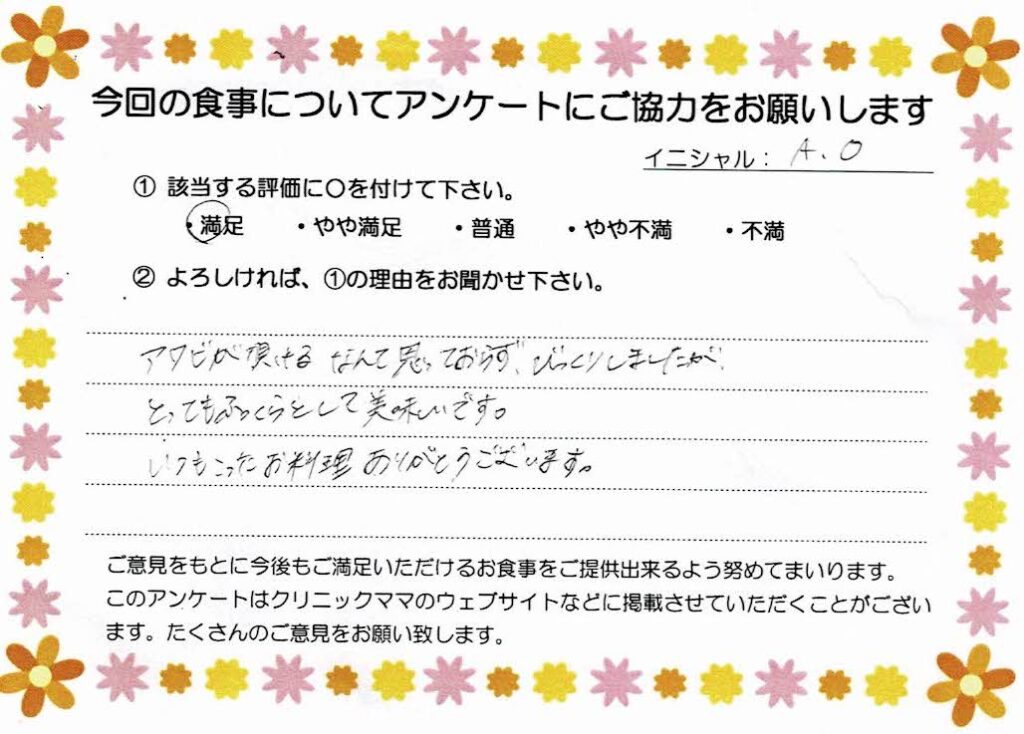 今回の食事についてアンケートにご協力をお願いします
イニシャル： A.O
① 該当する評価に〇を付けて下さい。
・満足 ・やや満足 ・普通 ・やや不満 ・不満
② よろしければ、①の理由をお聞かせ下さい。
アワビが頂けるなんて思っておらず、びっくりしましたが、
とってもふっくらとして美味しいです。
いつもこったお料理ありがとうございます。
ご意見をもとに今後もご満足いただけるお食事をご提供出来るよう努めてまいります。
このアンケートはクリニックママのウェブサイトなどに掲載させていただくことがござい
ます。たくさんのご意見をお願い致します。